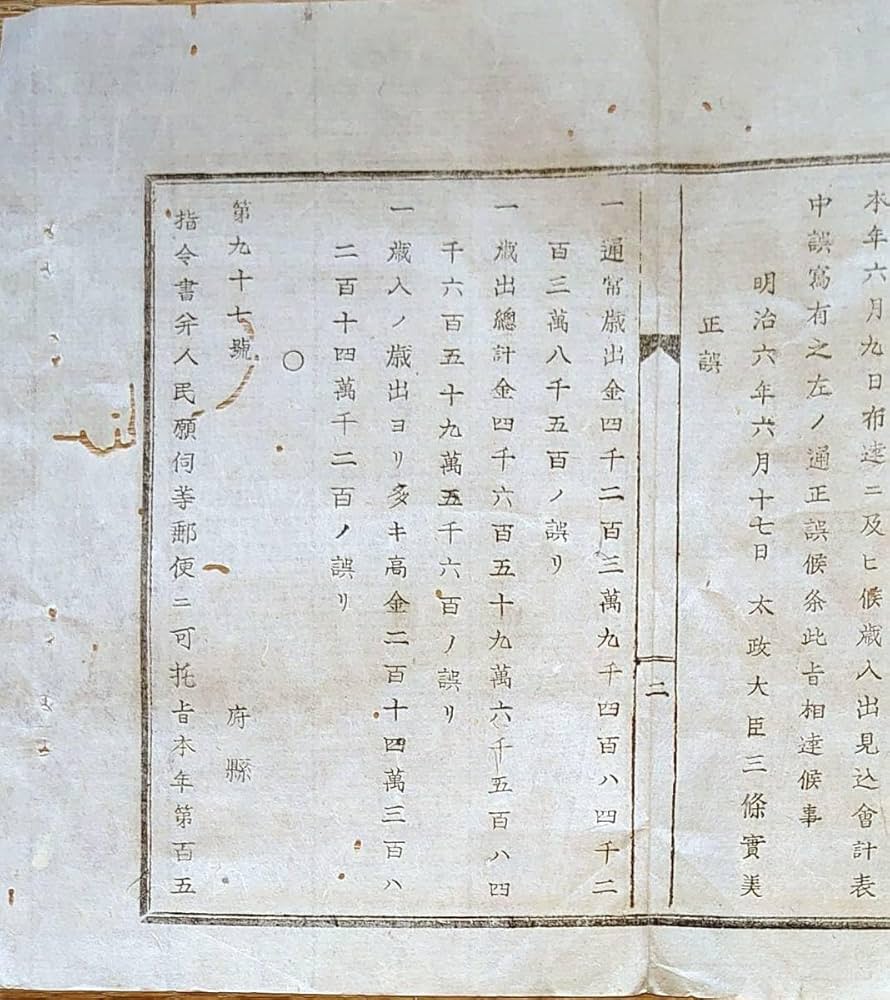 本年六月九日布達ニ及ヒ候歳入出見込會計表
中誤寫有之左ノ通正誤候条此旨相達候事
明治六年六月十七日 太政大臣三條實美
正誤
二
一通常歳出金四千二百三萬九千四百八四千二
百三萬八千五百ノ誤リ
一歳出總計金四千六百五十九萬六千五百八四
千六百五十九萬五千六百ノ誤リ
一歳入ノ歳出ヨリ多キ高金二百十四萬三百八
二百十四萬千二百ノ誤リ
〇
第九十七號 府縣
指令書并人民願伺等郵便ニ可托旨本年第百五